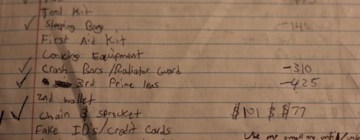 Tool Kit
Sleeping Bag
First Aid Kit
Cooking Equipment
Crash Bars/Radiator Guard -310
3rd Prime lens -425
2nd wallet
Chain & Sprocket $101 $ $77
Fake ID's/Credit Cards
Use my